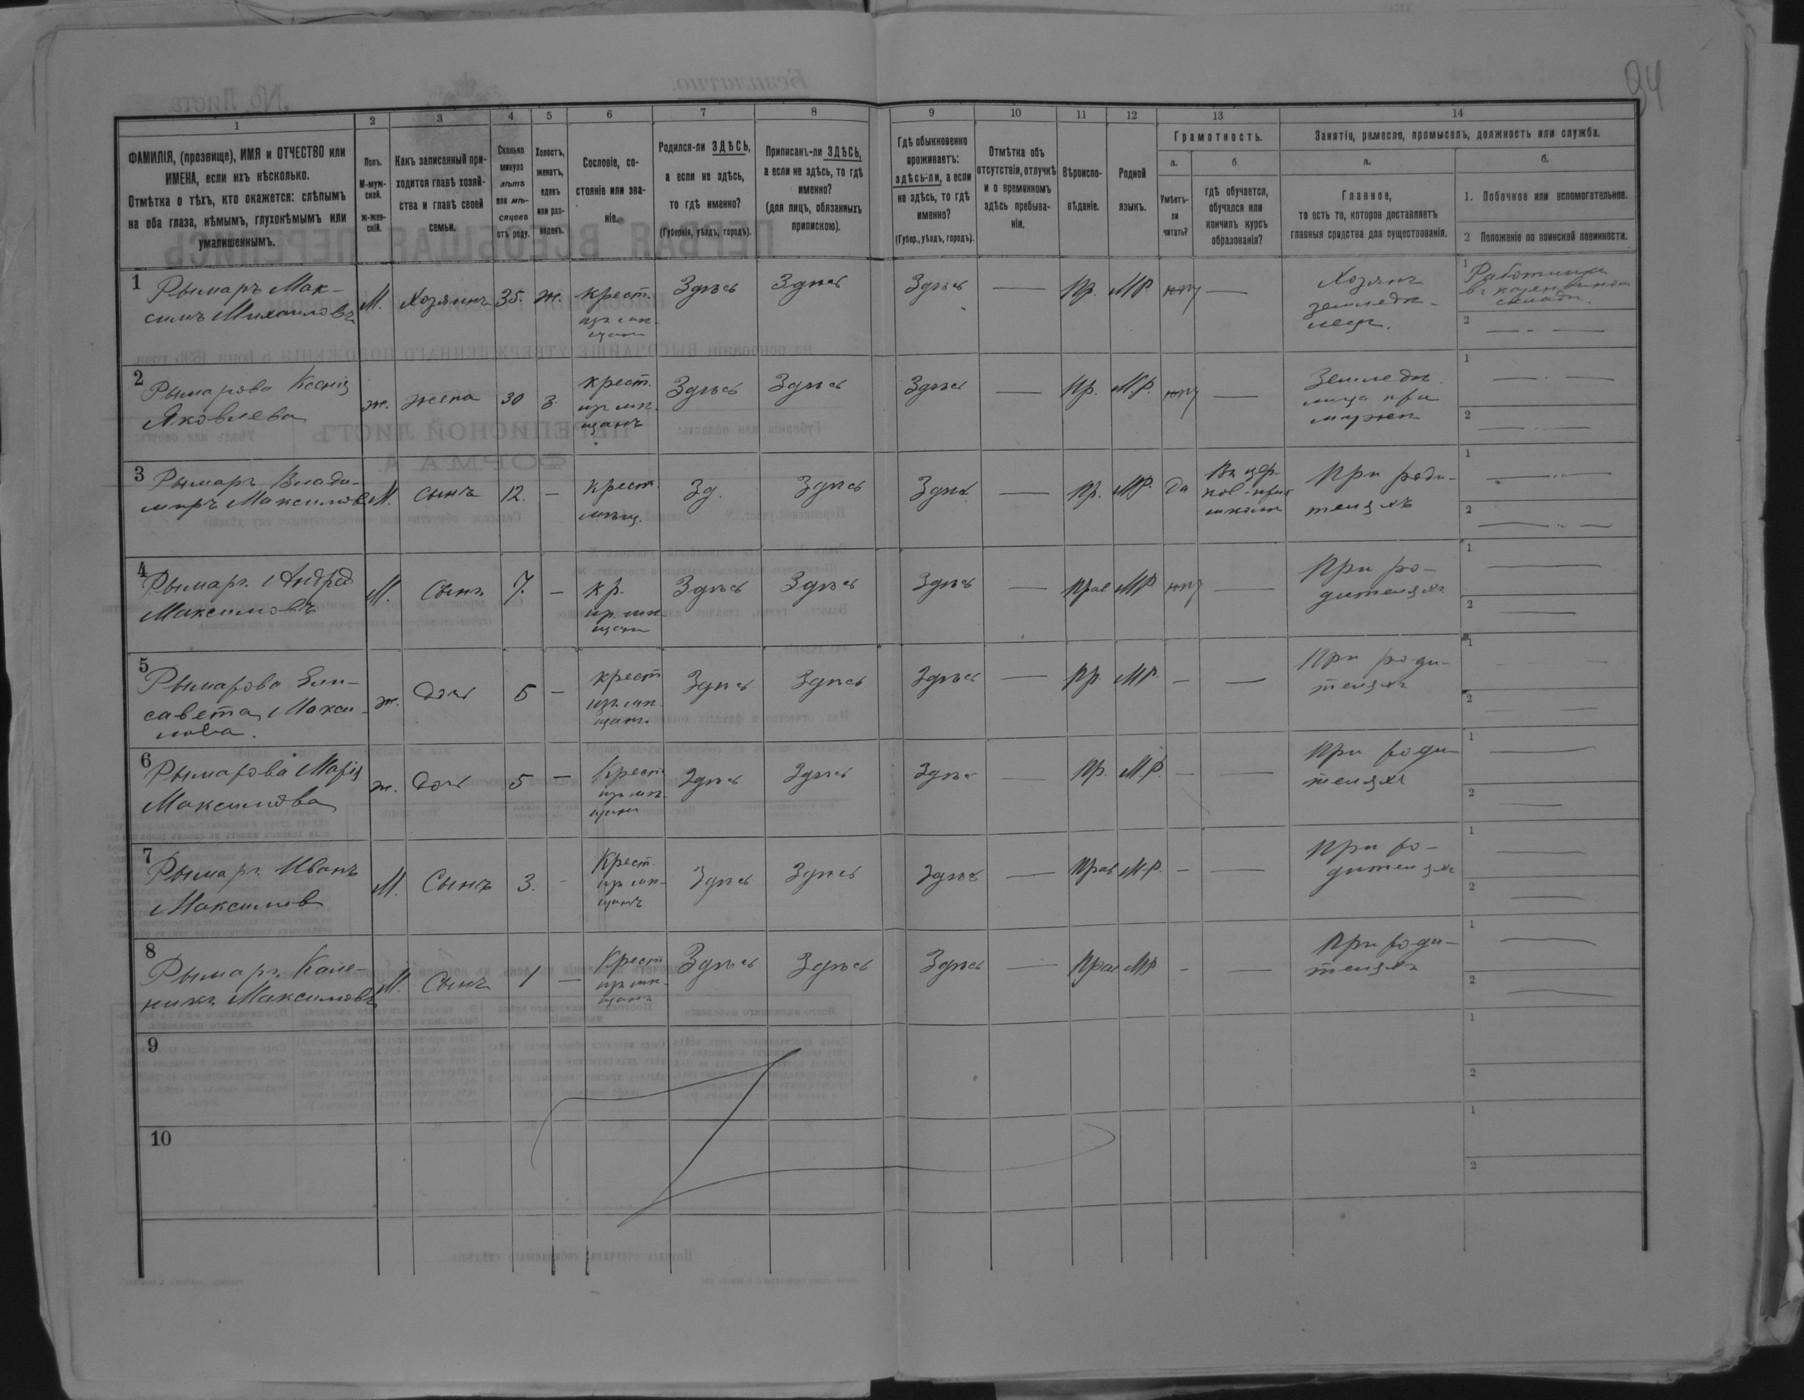 94
1 2 3 4 5 6 7 8 9 10 11 12 13 14
ФАМИЛІЯ, (прозвище), ИМЯ и ОТЧЕСТВО или
ИМЕНА, если ихъ нѣсколько.
Отмѣтка о тѣхъ, кто окажется: слѣпымъ
на оба глаза, нѣмымъ, глухонѣмымъ или
умалишеннымъ.
Полъ.
М-муж-
ской.
Ж-жен-
скій.
Какъ записанный при-
ходится главѣ хозяй-
ства и главѣ своей
семьи.
Сколько
минуло
лѣтъ
или мѣ-
сяцевъ
отъ роду.
Холостъ,
женатъ,
вдовъ
или раз-
веденъ.
Сословіе, со-
стояніе или зва-
ніе.
Родился-ли ЗДѢСЬ,
а если не здѣсь,
то гдѣ именно?
(Губернія, уѣздъ, городъ).
Приписанъ-ли ЗДѢСЬ,
а если не здѣсь, то гдѣ
именно?
(для лицъ, обязанныхъ
припискою).
Гдѣ обыкновенно
проживаетъ:
здѣсь-ли, а если
не здѣсь, то гдѣ
именно?
(Губер., уѣздъ, городъ).
Отмѣтка объ
отсутствіи, отлучкѣ
и о временномъ
здѣсь пребыва-
ніи.
Вѣроиспо-
вѣданіе.
Родной
языкъ.
Грамотность.
а.
Умѣетъ-
ли
читать?
б.
гдѣ обучается,
обучался или
кончилъ курсъ
образованія?
Занятіе, ремесло, промыселъ, должность или служба.
а.
Главное,
то есть то, которое доставляетъ
главныя средства для существованія.
б.
1. Побочное или вспомогательное.
2 Положеніе по воинской повинности.
1 Рымаръ Мак-
симъ Михаиловъ
М. Хозяинъ 35. ж. крест. Здѣсь Здѣсь Здѣсь — Пр. МР —
Хозяинъ
земледѣ-
лецъ.
1
2
2 Рымарова Ксенія
Яковлева
ж. жена 30 з. крест. Здѣсь Здѣсь Здѣсь — Пр. МР. —
Земледѣ.
лица при
мужѣ
1
2
3 Рымаръ Влади-
миръ Максимовъ
М. сынъ 12. — крест. Зд. Здѣсь Здѣсь — Пр. МР. Да
школѣ
При роди-
теляхъ
1
2
4 Рымаръ Андрей
Максимовъ
М. Сынъ 7. — кр. Здѣсь Здѣсь Здѣсь — Прав МР —
При ро-
дителяхъ
1
2
5 Рымарова Ели-
савета Макси-
мова.
ж. дочь 5 — крест Здѣсь Здѣсь Здѣсь — Пр. МР. — —
При роди-
теляхъ
1
2
6 Рымарова Марія
Максимова
ж. дочь 5 — Крест Здѣсь Здѣсь Здѣсь — Пр. МР — —
При роди-
теляхъ
1
2
7 Рымаръ Иванъ
Максимов
М. Сынъ 3. - Крест. Здѣсь Здѣсь Здѣсь — Прав МР. - —
При ро-
дителяхъ
1
2
8 Рымаръ Кале-
никъ Максимовъ
М. Сынъ 1 — Крест Здѣсь Здѣсь Здѣсь — Прав МР - —
При роди-
теляхъ
1
2
9
1
2
10
1
2